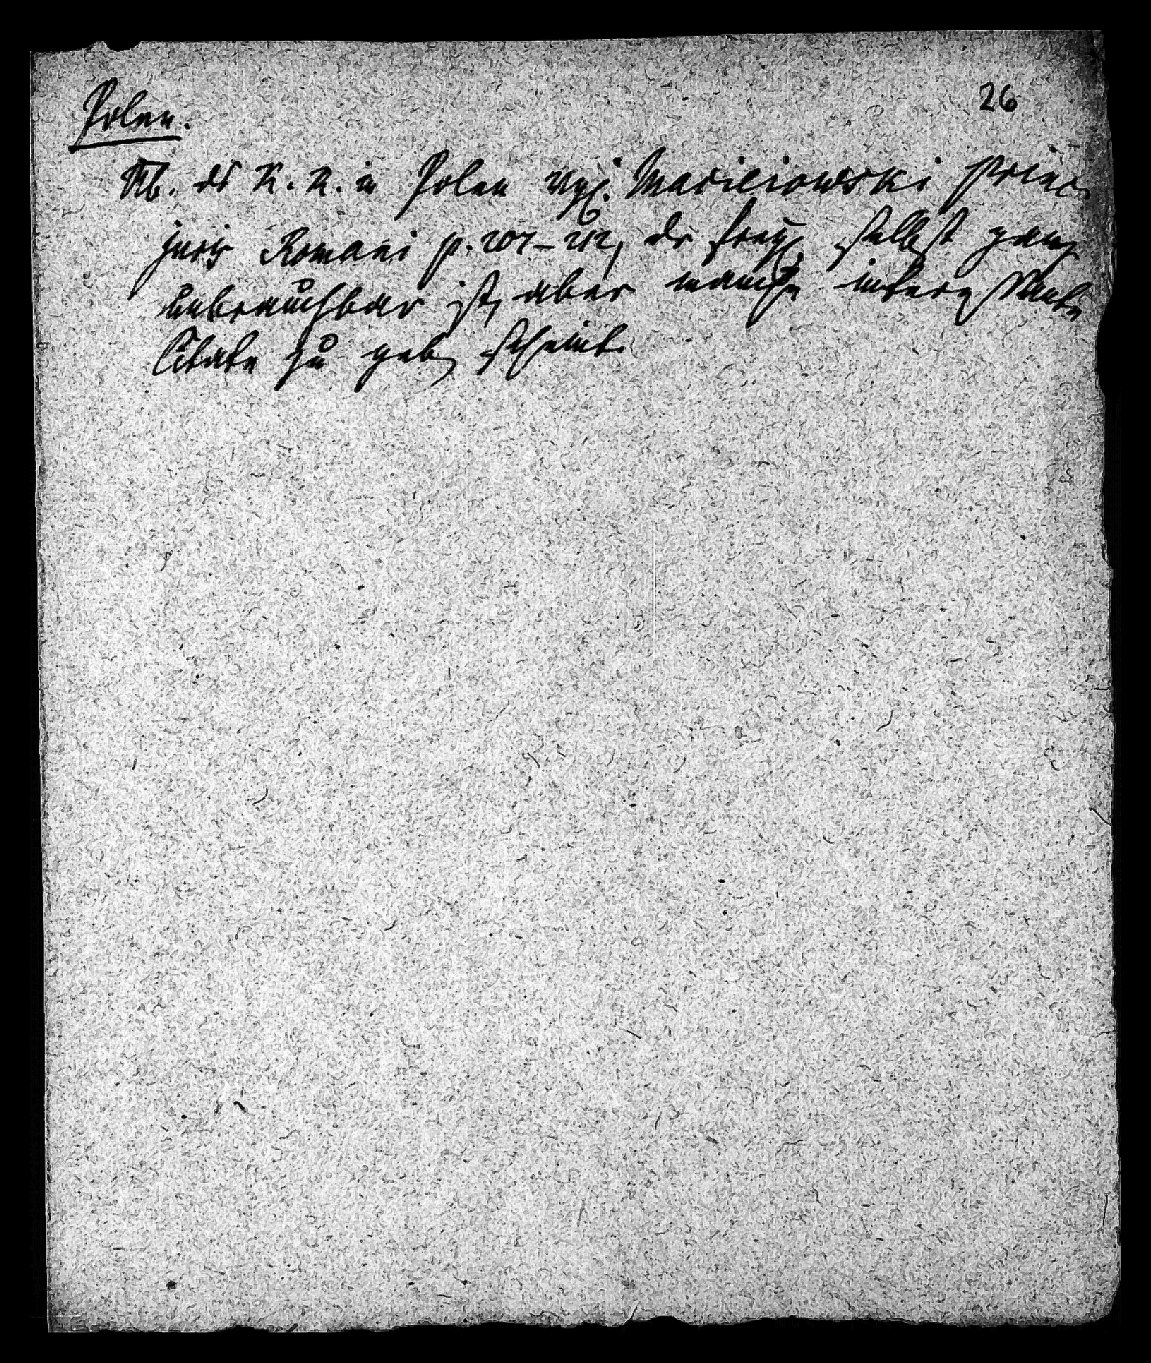 26
Polen.
Üb. ds R. R. in Polen vgl. Macieiowski princ.
juris Romani p. 207-212, dr freyl. selbst ganz
unbrauchbar ist, aber manche interessante
Citate zu geb scheint.